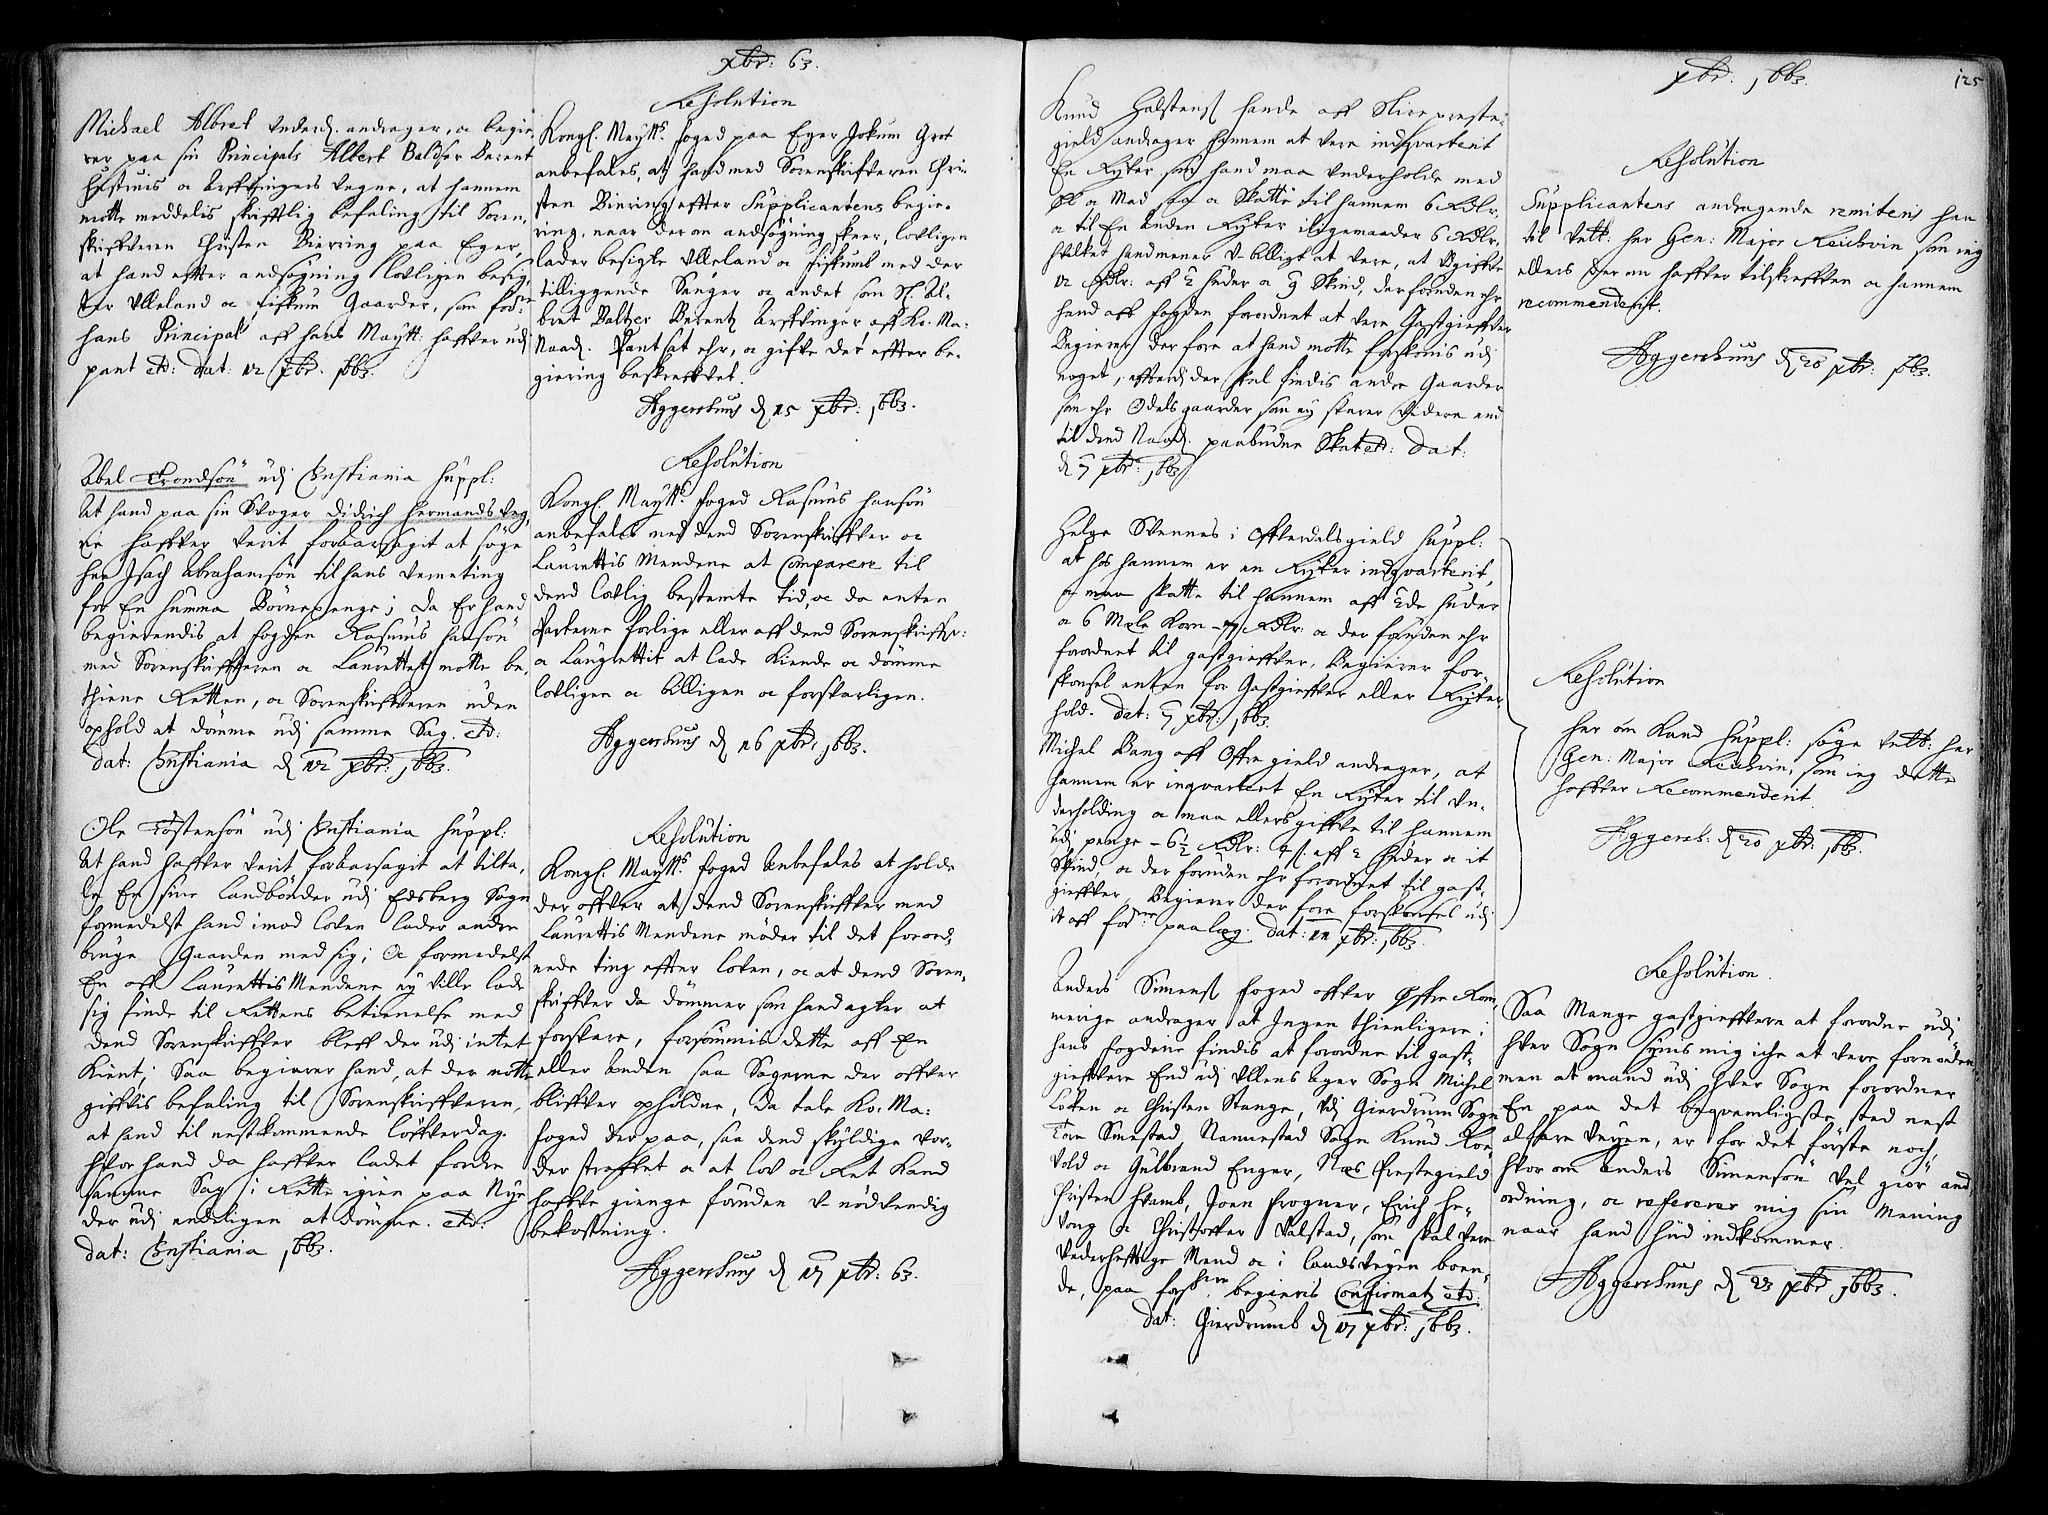 xbr: 63.
Michael Albret underd. andrager, oc begie-
rer paa sin Principals Albert Baltser Berent
hustruis oc Arffvingers vegne, at hannem
motte meddelis skrifftlig befaling til Soren-
skriffveren Christen Bierring paa Eger,
at hand effter andsøgning lovligen besig-
ter Ulleland oc Fiskum Gaarder, som for:ne
hans Principal aff hans Maytt: haffver udj
pant etc: dat: 12 xbr. 1663.
Resolution
Kongl. Maytts. foged paa Eger Jokum Grot
anbefales, at hand med Sorenskriffveren Chri-
sten Bierring effter Supplicantens begie-
ring, naar derom andsøgning skeer, lovligen
lader besigte Ulleland oc Fiskumb med der
tilliggende Senger oc andet som Sl. Al-
bret Baltzer Berentz Arffvinger aff Ko. Ma:
Naad. Pantsat ehr, oc giffve det effter be-
giering beskreffvet.
Aggershuus d 15 xbr: 1663.
Abel Trondsøn udj Christiania suppl:
At hand paa sin Svoger Didrich Hermands veg-
ne haffver verit foraarsagit at søge
her Isach Abrahamsøn til hans verneting
for En summa Børnepenge; Da Er hand
begierendis at fogden Rasmus Hansøn
med Sorenskriffveren oc Laurettet motte be-
thiene Retten, oc Sorenskriffveren uden
ophold at dømme udj samme Sag. etc:
dat: Christiania d 12 xbr: 1663.
Resolution
Kongl. Maytts. foged Rasmus Hansøn
anbefales med dend Sorenskriffver oc
Laurettis Mendene at Comparere til
dend lovlig bestemte tid, oc da enten
Parterne forlige eller aff dend Sorenskriffr:
oc Laugrettit at lade kiende oc dømme
lovligen oc billigen oc forsvarligen.
Aggershuus d 16 xbr: 1663.
Ole Tostensøn udj Christiania suppl:
At hand haffver verit foraarsagit at tilta-
le En sine Landbønder udj Edsberg Sogn
formedelst hand imod loven lader andre
bruge Gaarden med sig; Oc formedelst
En aff Laurettis Mendene ey ville lade
sig finde til Rettens betienelse med
dend Sorenskriffver bleff der udj intet
kient; Saa begierer hand, at der motte
giffvis befaling til Sorenskriffveren,
at hand til nestkommende løffverdag.
hvor hand da haffver ladet fordre
samme Sag i Rette igien paa Nye
der udj endeligen at dømme. etc:
dat: Christiania 1663.
Resolution
Kongl. Maytts. foged Anbefales at holde
der offver at dend Sorenskriffver med
Laurettis Mendene møder til det forord-
nede ting effter loven, oc at dend Soren-
skriffver da dømmer som hand agter at
forsvare, forsømmis dette aff En
eller anden saa Sagerne der offver
bliffver opholdne, da tale Ko. Ma:
foged der paa, saa dend skyldige vor-
der straffet oc at lov oc Ret kand
haffve gienge foruden u-nødvendig
bekostning.
Aggershuus d 17 xbr: 63.
xbr: 1663.
125
Knud Halstensøn Hande aff Slire preste-
gield andrager hannem at vere indqvarterit
En Ryter som hand maa underholde med
Øl oc Mad oc Skatte til hannem 6 Rdlr.
oc til En anden Ryter iligemaader 6 Rdlr.
hvilket hand mener u-billigt at vere, at udgiffve
12 Rdlr: aff 2 huder oc 9 Skind, der foruden ehr
hand aff fogden forordnet at vere Gastgieffver
Begierer der fore at hand motte forskonis udj
noget, efterdj der skal findis andre Gaarder
som ehr Odels gaarder som ey svarer videre end
til dend Naad. paabudne Skat etc: dat:
d 7 xbr: 1663.
Resolution
Supplicantens andragende remiteris hen
til Velb: her Gen: Major Reichvin som ieg
ellers der om haffver tilskreffven oc hannem
recommenderit.
Aggershuus d 20 xbr: 1663.
Helge Svennes i Offverdals gield suppl:
at hos hannem er en Ryter indqvarterit,
oc maa skatte til hannem aff 2de huder
oc 6 Mæle korn - 7 Rdlr: oc der foruden ehr
forordnet til gastgieffver, Begierer for-
skonsel enten for Gastgieffver eller Ryter
hold. dat: 7 xbr: 1663.
Michel Bang aff Offre gield andrager, at
hannem er inqvartert En Ryter til un-
derholding oc maa ellers giffve til hannem
udj penge - 6½ Rdlr: aff 2 huder oc it
Skind, oc der foruden ehr forordnet til gast-
gieffver, Begierer der fore forskonsel udj
it aff for:ne paalæg. dat: 12 xbr: 1663.
Resolution
her om kand suppl: søge Velb: her
Gen: Major Reichvin, som ieg dette
haffver Recommenderit.
Aggersh. d 20 xbr: 1663.
Anders Simensøn foged offver Øffre Rom-
merige andrager at Ingen thienligere i
hans fogderie findis at forordne til gast-
gieffvere End udj Ullens ager Sogn Michel
Loken oc Christen Stange, Udj Gierdrum Sogn
Tore Smestad, Nannestad Sogn Knud Koe-
vold oc Gulbrand Enger, Nes Prestegield
Christen Hvamb, Joen Frogner, Erich He-
vog oc Christoffer Valstad, som skal vere
Vederhefftige Mend oc i landsveyen boen-
de, paa forskr:ne begieris Confirmatz etc:
dat: Gierdrumb d 17 xbr: 1663.
Resolution.
Saa Mange gastgieffvere at forordne udj
hver Sogn synis mig iche at vere fornøden
men at mand udj hver Sogn forordner
En paa det beqvemligste sted nest
alfare veyen, er for det første noch,
hvor om Anders Simensøn vel giør and-
ordning, oc referer mig sin Mening
naar hand hid indkommer.
Aggershuus d 23 xbr 1663.